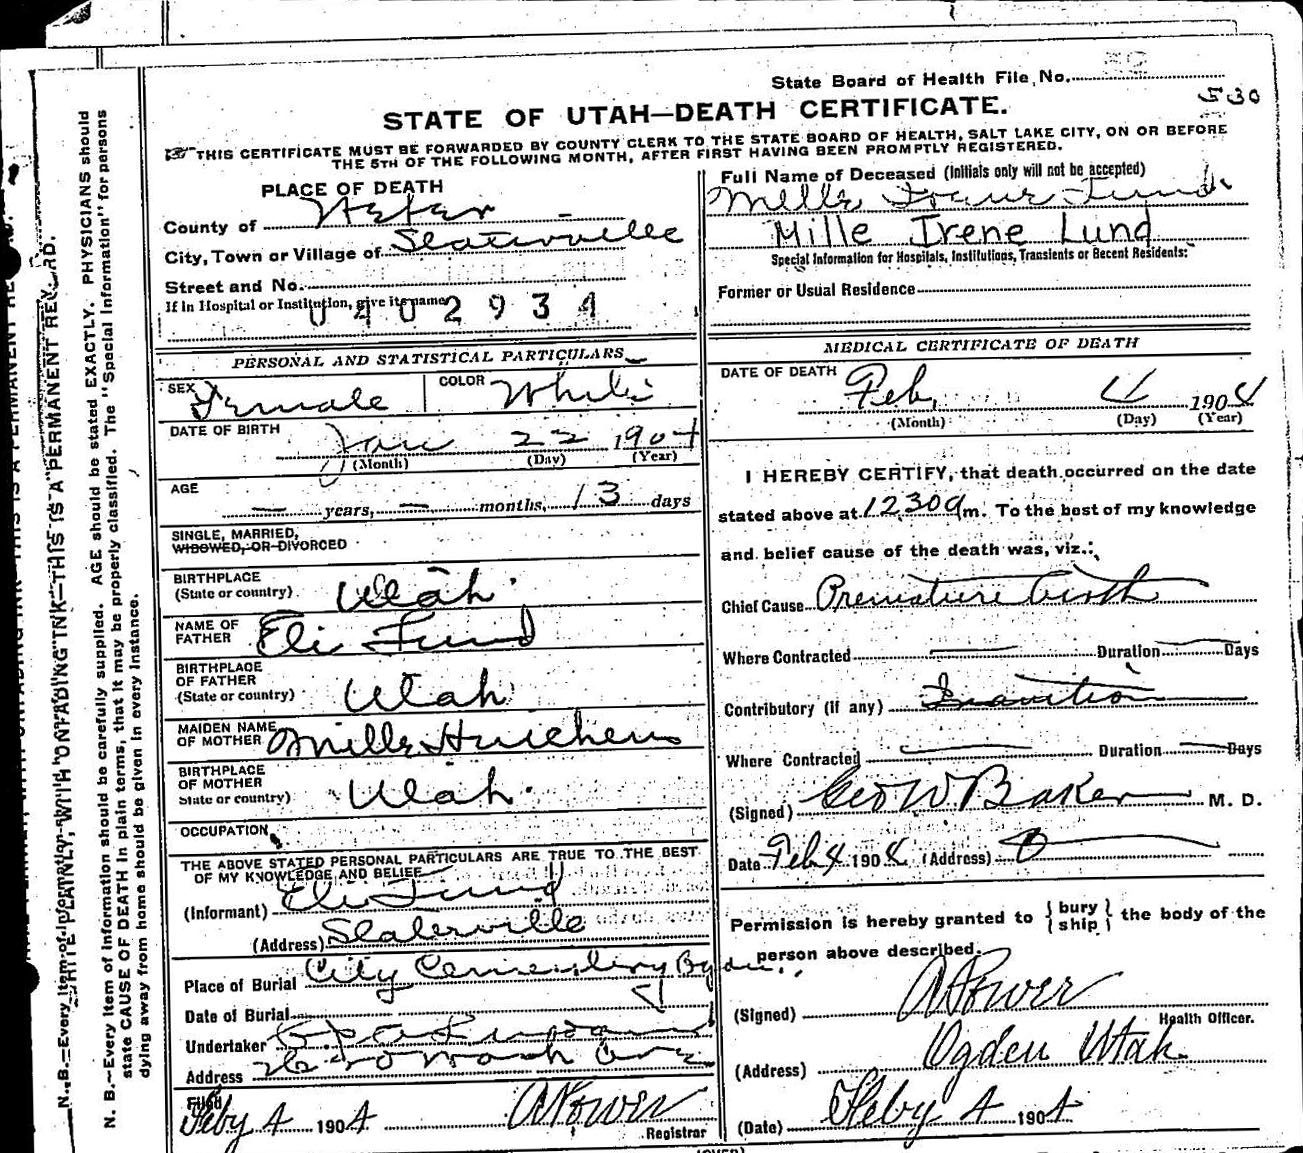 State Board of Health File No.
530
STATE OF UTAH—DEATH CERTIFICATE.
THIS CERTIFICATE MUST BE FORWARDED BY COUNTY CLERK TO THE STATE BOARD OF HEALTH, SALT LAKE CITY, ON OR BEFORE
THE 5TH OF THE FOLLOWING MONTH, AFTER FIRST HAVING BEEN PROMPTLY REGISTERED.
PLACE OF DEATH
County of Weber
City, Town or Village of Slaterville
Street and No.
If in Hospital or Institution, give its name
0402934
Full Name of Deceased (Initials only will not be accepted)
Mille Irene Lund
Mille Irene Lund
Special Information for Hospitals, Institutions, Transients or Recent Residents:
Former or Usual Residence
PERSONAL AND STATISTICAL PARTICULARS
SEX Female COLOR White
DATE OF BIRTH Jan 22 1904
(Month) (Day) (Year)
AGE
— years, — months, 13 days
SINGLE, MARRIED,
WIDOWED, OR DIVORCED
BIRTHPLACE
(State or country) Utah
NAME OF
FATHER Eli Lund
BIRTHPLACE
OF FATHER
(State or country) Utah
MAIDEN NAME
OF MOTHER Mille
BIRTHPLACE
OF MOTHER
State or country) Utah
OCCUPATION
THE ABOVE STATED PERSONAL PARTICULARS ARE TRUE TO THE BEST
OF MY KNOWLEDGE AND BELIEF
(Informant) Eli Lund
(Address) Slaterville
Place of Burial City Cemetery Ogden
Date of Burial
Undertaker
Address Wash Ave
Filed
Feby 4 1904 A Power
Registrar
MEDICAL CERTIFICATE OF DEATH
DATE OF DEATH Feb, 4 1904
(Month) (Day) (Year)
I HEREBY CERTIFY, that death occurred on the date
stated above at 12 30 a m. To the best of my knowledge
and belief cause of the death was, viz.:
Chief Cause Premature birth
Where Contracted — Duration — Days
Contributory (if any) Inanition
Where Contracted — Duration — Days
(Signed) Geo W. Baker M. D.
Date Feb 4 1904 (Address) O
Permission is hereby granted to { bury ship } the body of the
person above described.
(Signed) A Power
Health Officer.
(Address) Ogden Utah
(Date) Feby 4 1904
N. B.—Every item of information should be carefully supplied. AGE should be stated EXACTLY. PHYSICIANS should
state CAUSE OF DEATH in plain terms, that it may be properly classified. The "Special Information" for persons
dying away from home should be given in every instance.
WRITE PLAINLY, WITH UNFADING INK—THIS IS A PERMANENT RECORD.
(OVER)